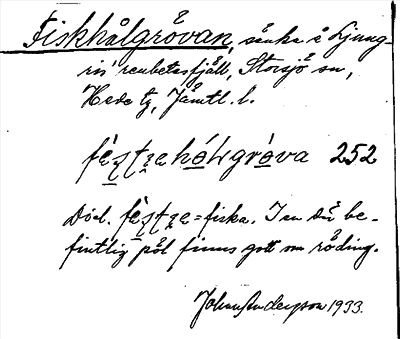 Fiskhålgråvan, sänka å Ljung-
ris' renbetesfjäll, Storsjö sn,
Hede tg, Jämtl. l.
252
Dial. = fiska. I en där be-
fintlig pöl finns gott om röding.
Johan Anderzson 1933.